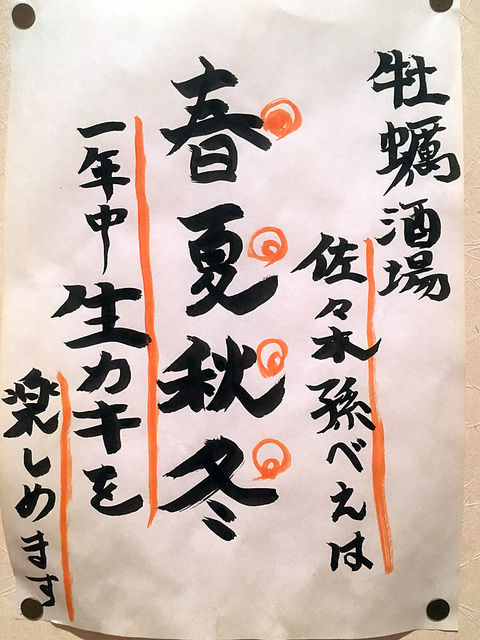 牡蠣酒場
佐々木孫べえは
春夏秋冬
一年中生カキを
楽しめます